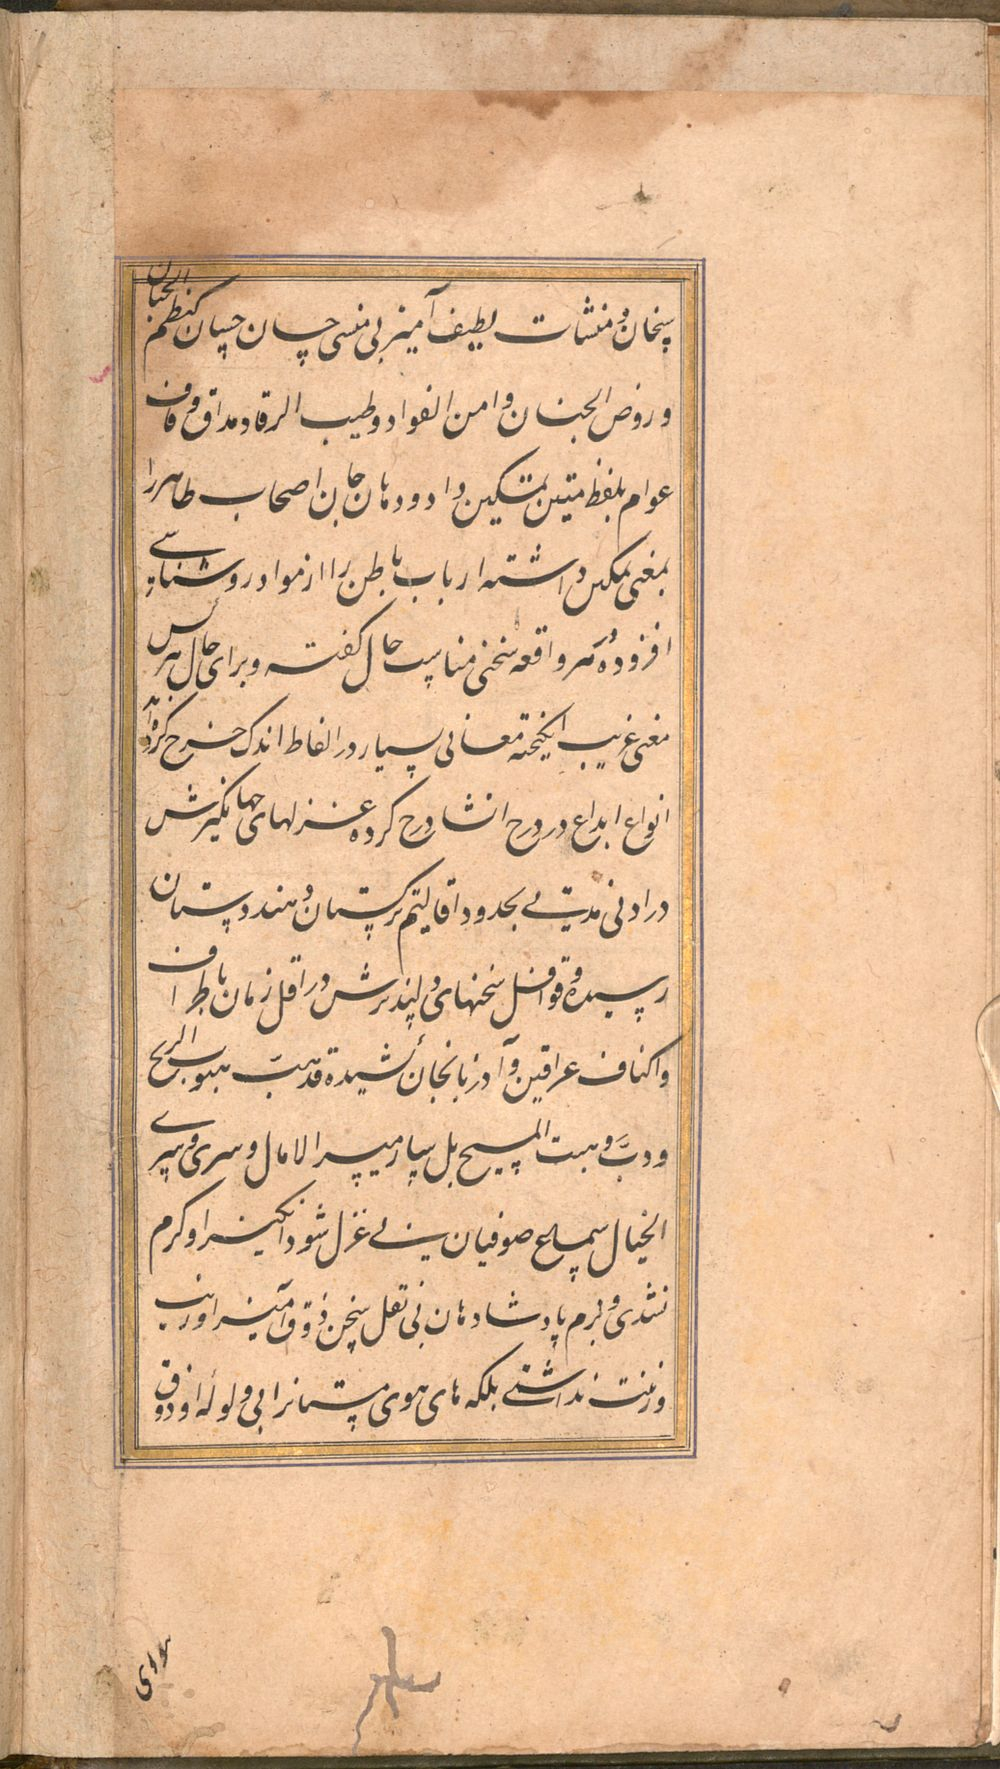 سخنان و منشات لطیف آمیز بی منسی چسان چسپان کنظم الجنان
و روض الجنان و امن الفواد و طیب الرقاد مداق وقاف
عوام بلفظ متین تمکین داد و دهان جان اصحاب ظاهر را
بمعنی نمکین داشته ارباب باطن را از مواد روشنائی
افزوده در هر واقعه سخنی مناسب حال گفته و برای حال هرکس
معنی غریب انگیخته معانی بسیار در الفاظ اندک خرج کرده اند
انواع ابداع در درج انشا درج کرده غزلهای جهانگیرش
در ادنی مدتی بحدود اقالیم ترکستان و هندوستان
رسیده و قوافل سخنهای دلپذیرش در اقل زمان باطراف
و اکناف عراقین و آذربایجان کشیده قد هب هبوب الریح
و دب دبیب المسیح بل سار مسیر الامال و سری سری
الخیال سماع صوفیان بی غزل شورانگیز او گرم
نشدی و بزم پادشاهان بی نقل سخن ذوق آمیز او زیب
و زینت نداشتی بلکه های هوی مستانرا بی ولوله او ذوق